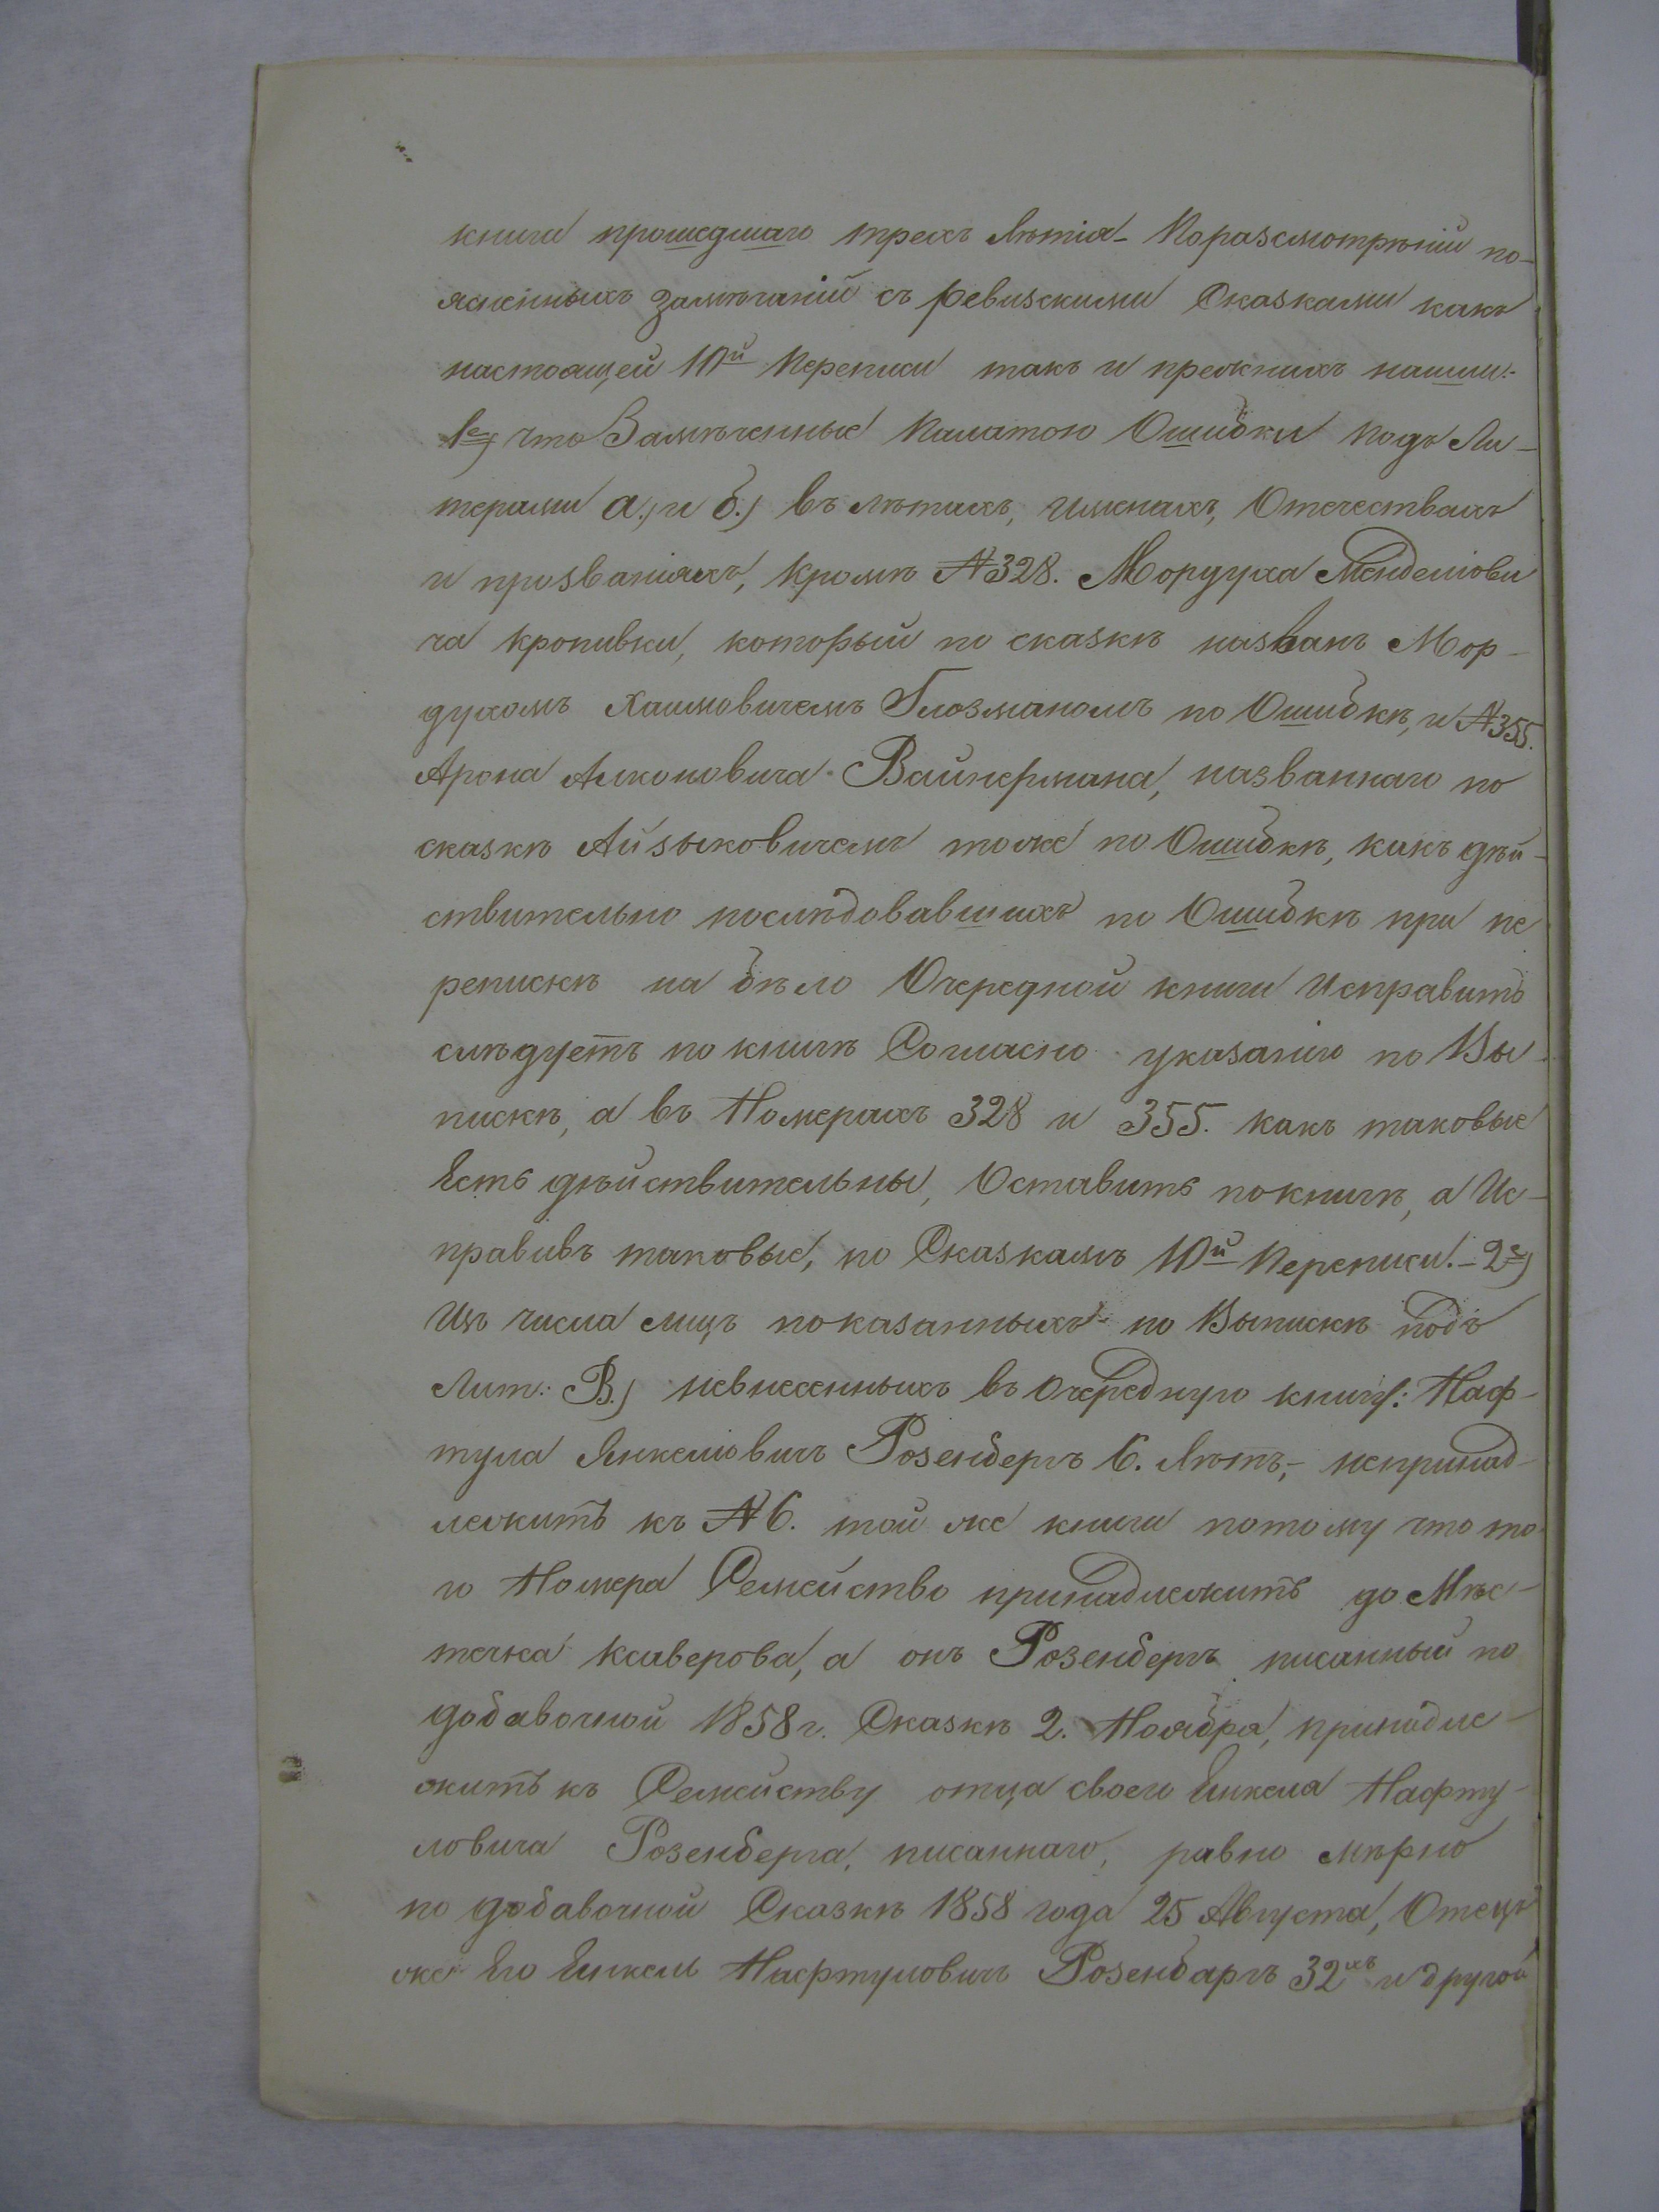 книги прошедшаго трехъ лѣтія - По разсмотрѣніи по-
ясненныхъ замѣчаній съ ревизскими Сказками какъ
настоящей 10й Переписи такъ и прежнихъ нашли:-
1е) что Замѣченные Палатою Ошибки подъ Ли-
терами а.) и б.) въ лѣтахъ, именахъ, Отечествахъ
и прозваніяхъ, кромѣ № 328. Мордуха Менделіови
ча Кропивки, который по сказкѣ названъ Мор-
духомъ Хаимовичемъ Глозманомъ по Ошибкѣ, и № 355.
Арона Айконовича Вайнермана, названнаго по
сказкѣ Айзыковичемъ тоже по Ошибкѣ, какъ дѣй-
ствительно послѣдовавшихъ по Ошибкѣ при пе
репискѣ на бѣло Очередной книги Исправить
слѣдуетъ по книгѣ Согласно указанію по Вы-
пискѣ, а въ Номерахъ 328 и 355. какъ таковые
Есть дѣйствительны, Оставить по книгѣ, а Ис-
правивъ таковые, по Сказкамъ 10й Переписи. - 2е)
Изъ числа лицъ показанныхъ по Выпискѣ подъ
Лит: В.) невнесенныхъ въ Очередную книгу: Наф-
тула Янкеліовичъ Розенбергъ 6. Лѣтъ, - непринад-
лежитъ къ № 6. той же книги потому что то
го Номера Семейство принадлежитъ до Мѣс-
течка Ксаверова, а онъ Розенбергъ писанный по
добавочной 1858 г. Сказкѣ 2. Ноября, принадле-
житъ къ Семейству отца своего Янкеля Нафту-
ловича Розенберга, писаннаго, равно мѣрно
по добавочной Сказкѣ 1858 года 25 Августа, Отецъ
же Его Янкель Нафтуловичъ Розенбаргъ 32хъ и другой